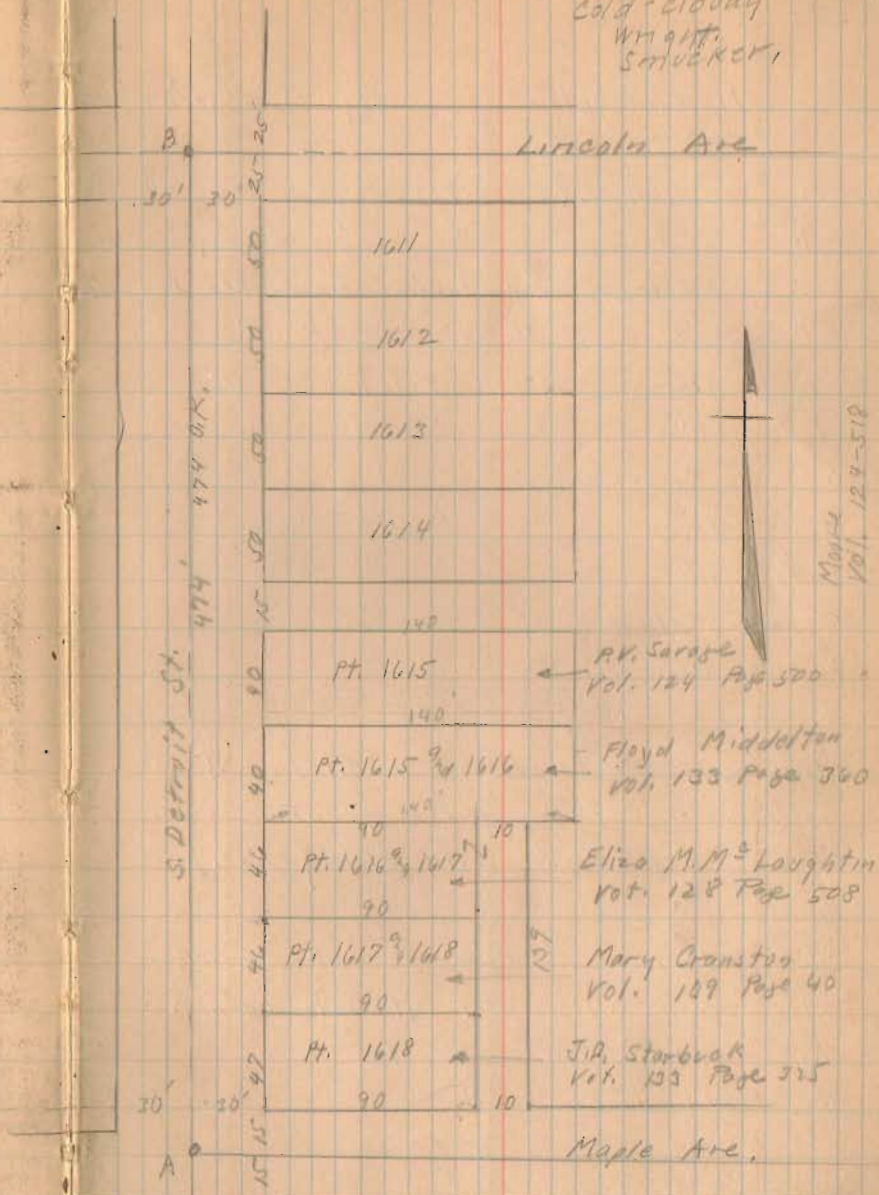 Cold - Cloudy
Wright.
Smucker,
B
25
25
Lincoln Ave
30'
30'
50
1611
50
1612
50
1613
50
1614
474 O.K.
474'
S. Detroit St.
15
140
40
Pt. 1615
P.V. Savage
Vol. 124 Page 500
140
40
Pt. 1615 & 1616
Floyd Middelton
Vol. 133 Page 360
140'
90
10
46
Pt. 1616 & 1617
Eliza M. Mc Laughtin
Vol. 128 Page 508
90
46
Pt. 1617 & 1618
139
Mary Cranston
Vol. 109 Page 40
90
47
Pt. 1618
J.D. Starbuck
Vol. 133 Page 325
30'
30'
90
10
15
15
A
Maple Ave.
Moore
Vol. 124-518